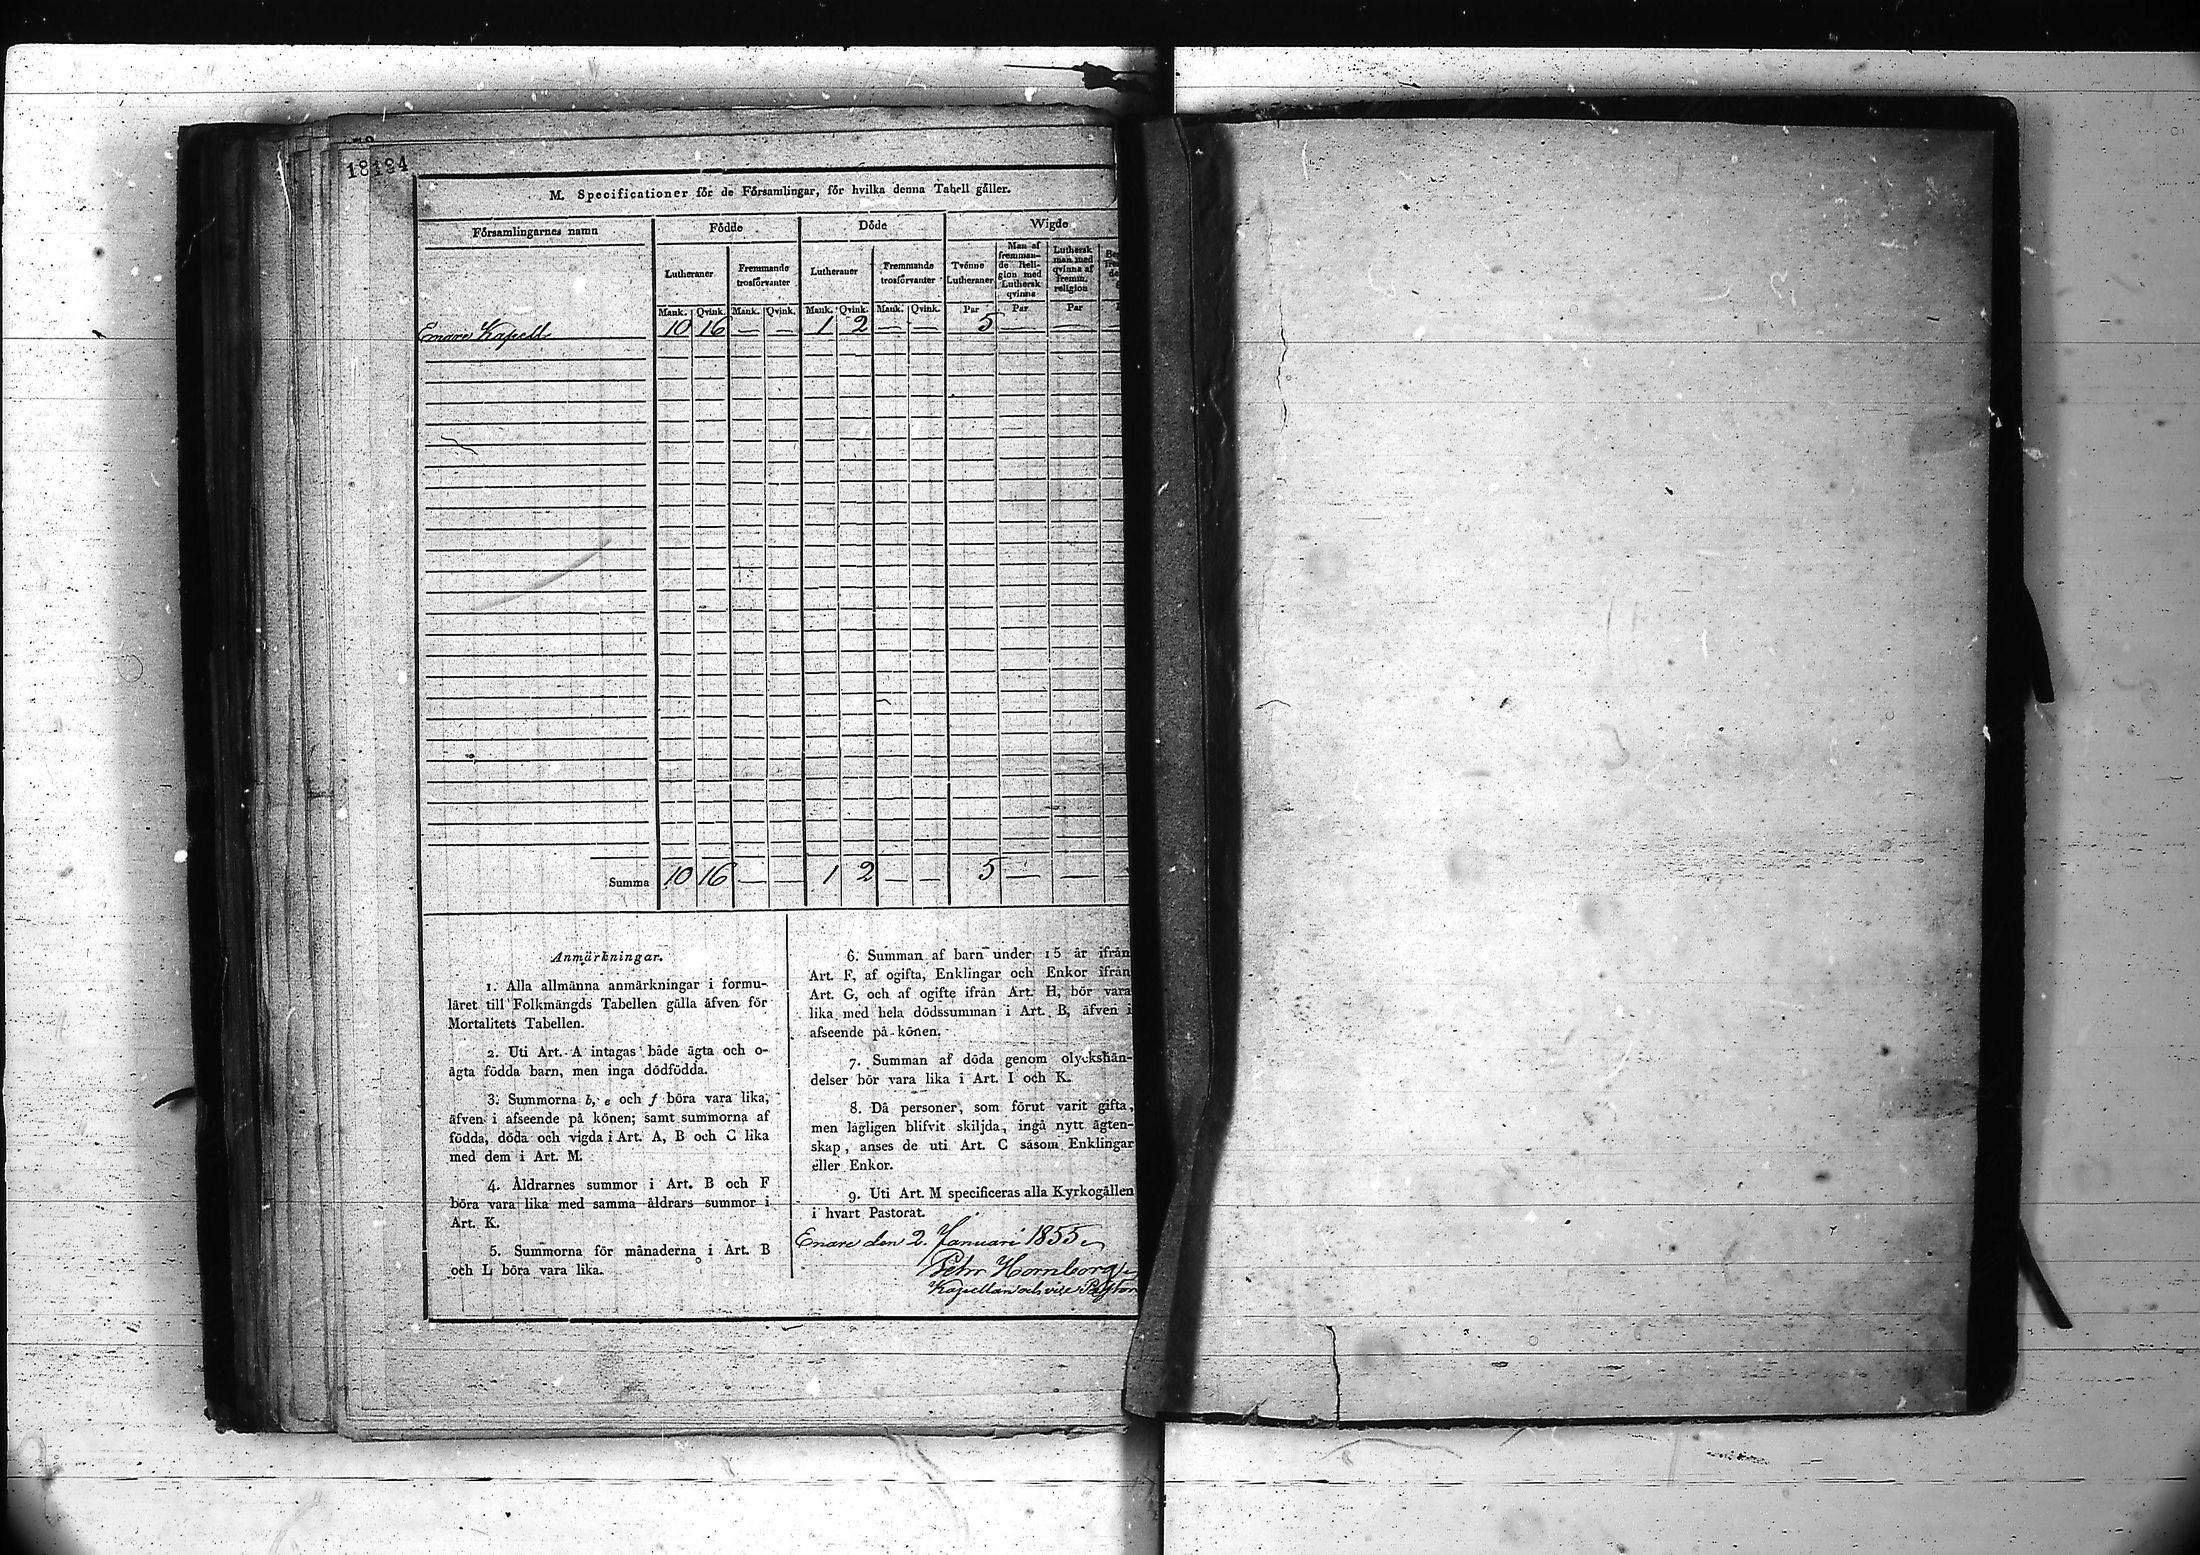 18184
M. Specificationer för de Församlingar, för hvilka denna Tabell gäller.
Församlingarnes namn Födde Döde Wigde
Lutheraner Fremmande trosförvanter Lutheraner Fremmande trosförvanter Tvenne Lutheraner Man af fremmande Religion med Luthersk qvinna Luthersk man med qvinna af fremm. religion
Mank. Qvink. Mank. Qvink. Mank. Qvink. Mank. Qvink. Par Par Par
Enare Kapell 10 16 — — 1 2 — — 5 — —
Summa 10 16 — — 1 2 — — 5 — —
Anmärkningar.
1. Alla allmänna anmärkningar i formu-
läret till Folkmängds Tabellen gälla äfven för
Mortalitets Tabellen.
2. Uti Art. A intagas både ägta och o-
ägta födda barn, men inga dödfödda.
3. Summorna b, e och f böra vara lika,
äfven i afseende på könen; samt summorna af
födda, döda och vigda i Art. A, B och C lika
med dem i Art. M.
4. Åldrarnes summor i Art. B och F
böra vara lika med samma åldrars summor i
Art. K.
5. Summorna för månaderna i Art. B
och L böra vara lika.
6. Summan af barn under 15 år ifrån
Art. F, af ogifta, Enklingar och Enkor ifrån
Art. G, och af ogifte ifrån Art. H, bör vara
lika med hela dödssumman i Art. B, äfven i
afseende på könen.
7. Summan af döda genom olyckshän-
delser bör vara lika i Art. I och K.
8. Då personer, som förut varit gifta,
men lagligen blifvit skiljda, ingå nytt ägten-
skap, anses de uti Art. C såsom Enklingar
eller Enkor.
9. Uti Art. M specificeras alla Kyrkogällen
i hvart Pastorat.
Enare den 2. Januari 1855
Petr Hornborg
Kapellan och vice Pastor